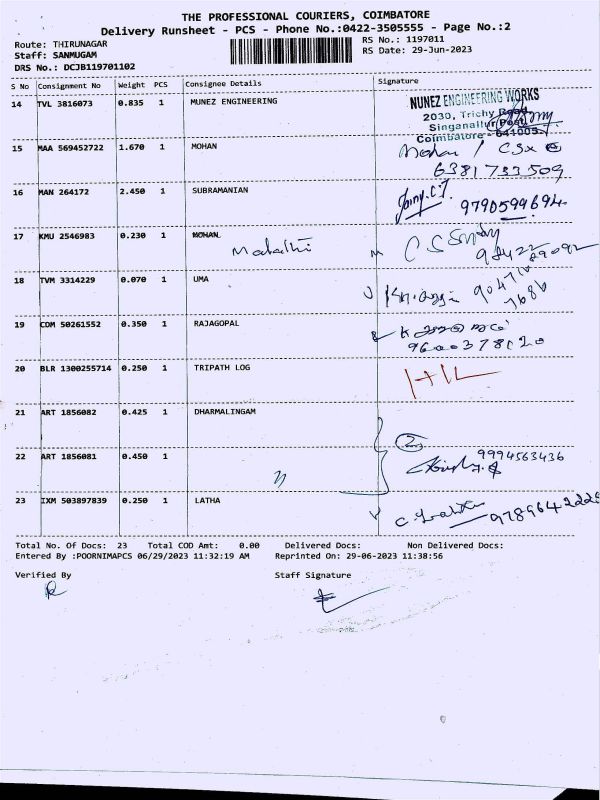 THE PROFESSIONAL COURIERS, COIMBATORE
Delivery Runsheet - PCS - Phone No.:0422-3505555 - Page No.:2
Route: THIRUNAGAR RS No.: 1197011
Staff: SANMUGAM RS Date: 29-Jun-2023
DRS No.: DCJB119701102
S No Consignment No Weight PCS Consignee Details Signature
14 TVL 3816073 0.835 1 MUNEZ ENGINEERING
NUNEZ ENGINEERING WORKS
2030, Trichy Road,
Singanallur Post,
Coimbatore - 641005
15 MAA 569452722 1.670 1 MOHAN Mohan / CSK
6381733509
16 MAN 264172 2.450 1 SUBRAMANIAN
9790599694
17 KMU 2546983 0.230 1 MOHAN
Malathi
18 TVM 3314229 0.070 1 UMA
19 CDM 50261552 0.350 1 RAJAGOPAL
9600378120
20 BLR 1300255714 0.250 1 TRIPATH LOG
21 ART 1856082 0.425 1 DHARMALINGAM
2
22 ART 1856081 0.450 1 9994563436
23 IXM 503897839 0.250 1 LATHA
Total No. Of Docs: 23 Total COD Amt: 0.00 Delivered Docs: Non Delivered Docs:
Entered By :POORNIMAPCS 06/29/2023 11:32:19 AM Reprinted On: 29-06-2023 11:38:56
Verified By Staff Signature